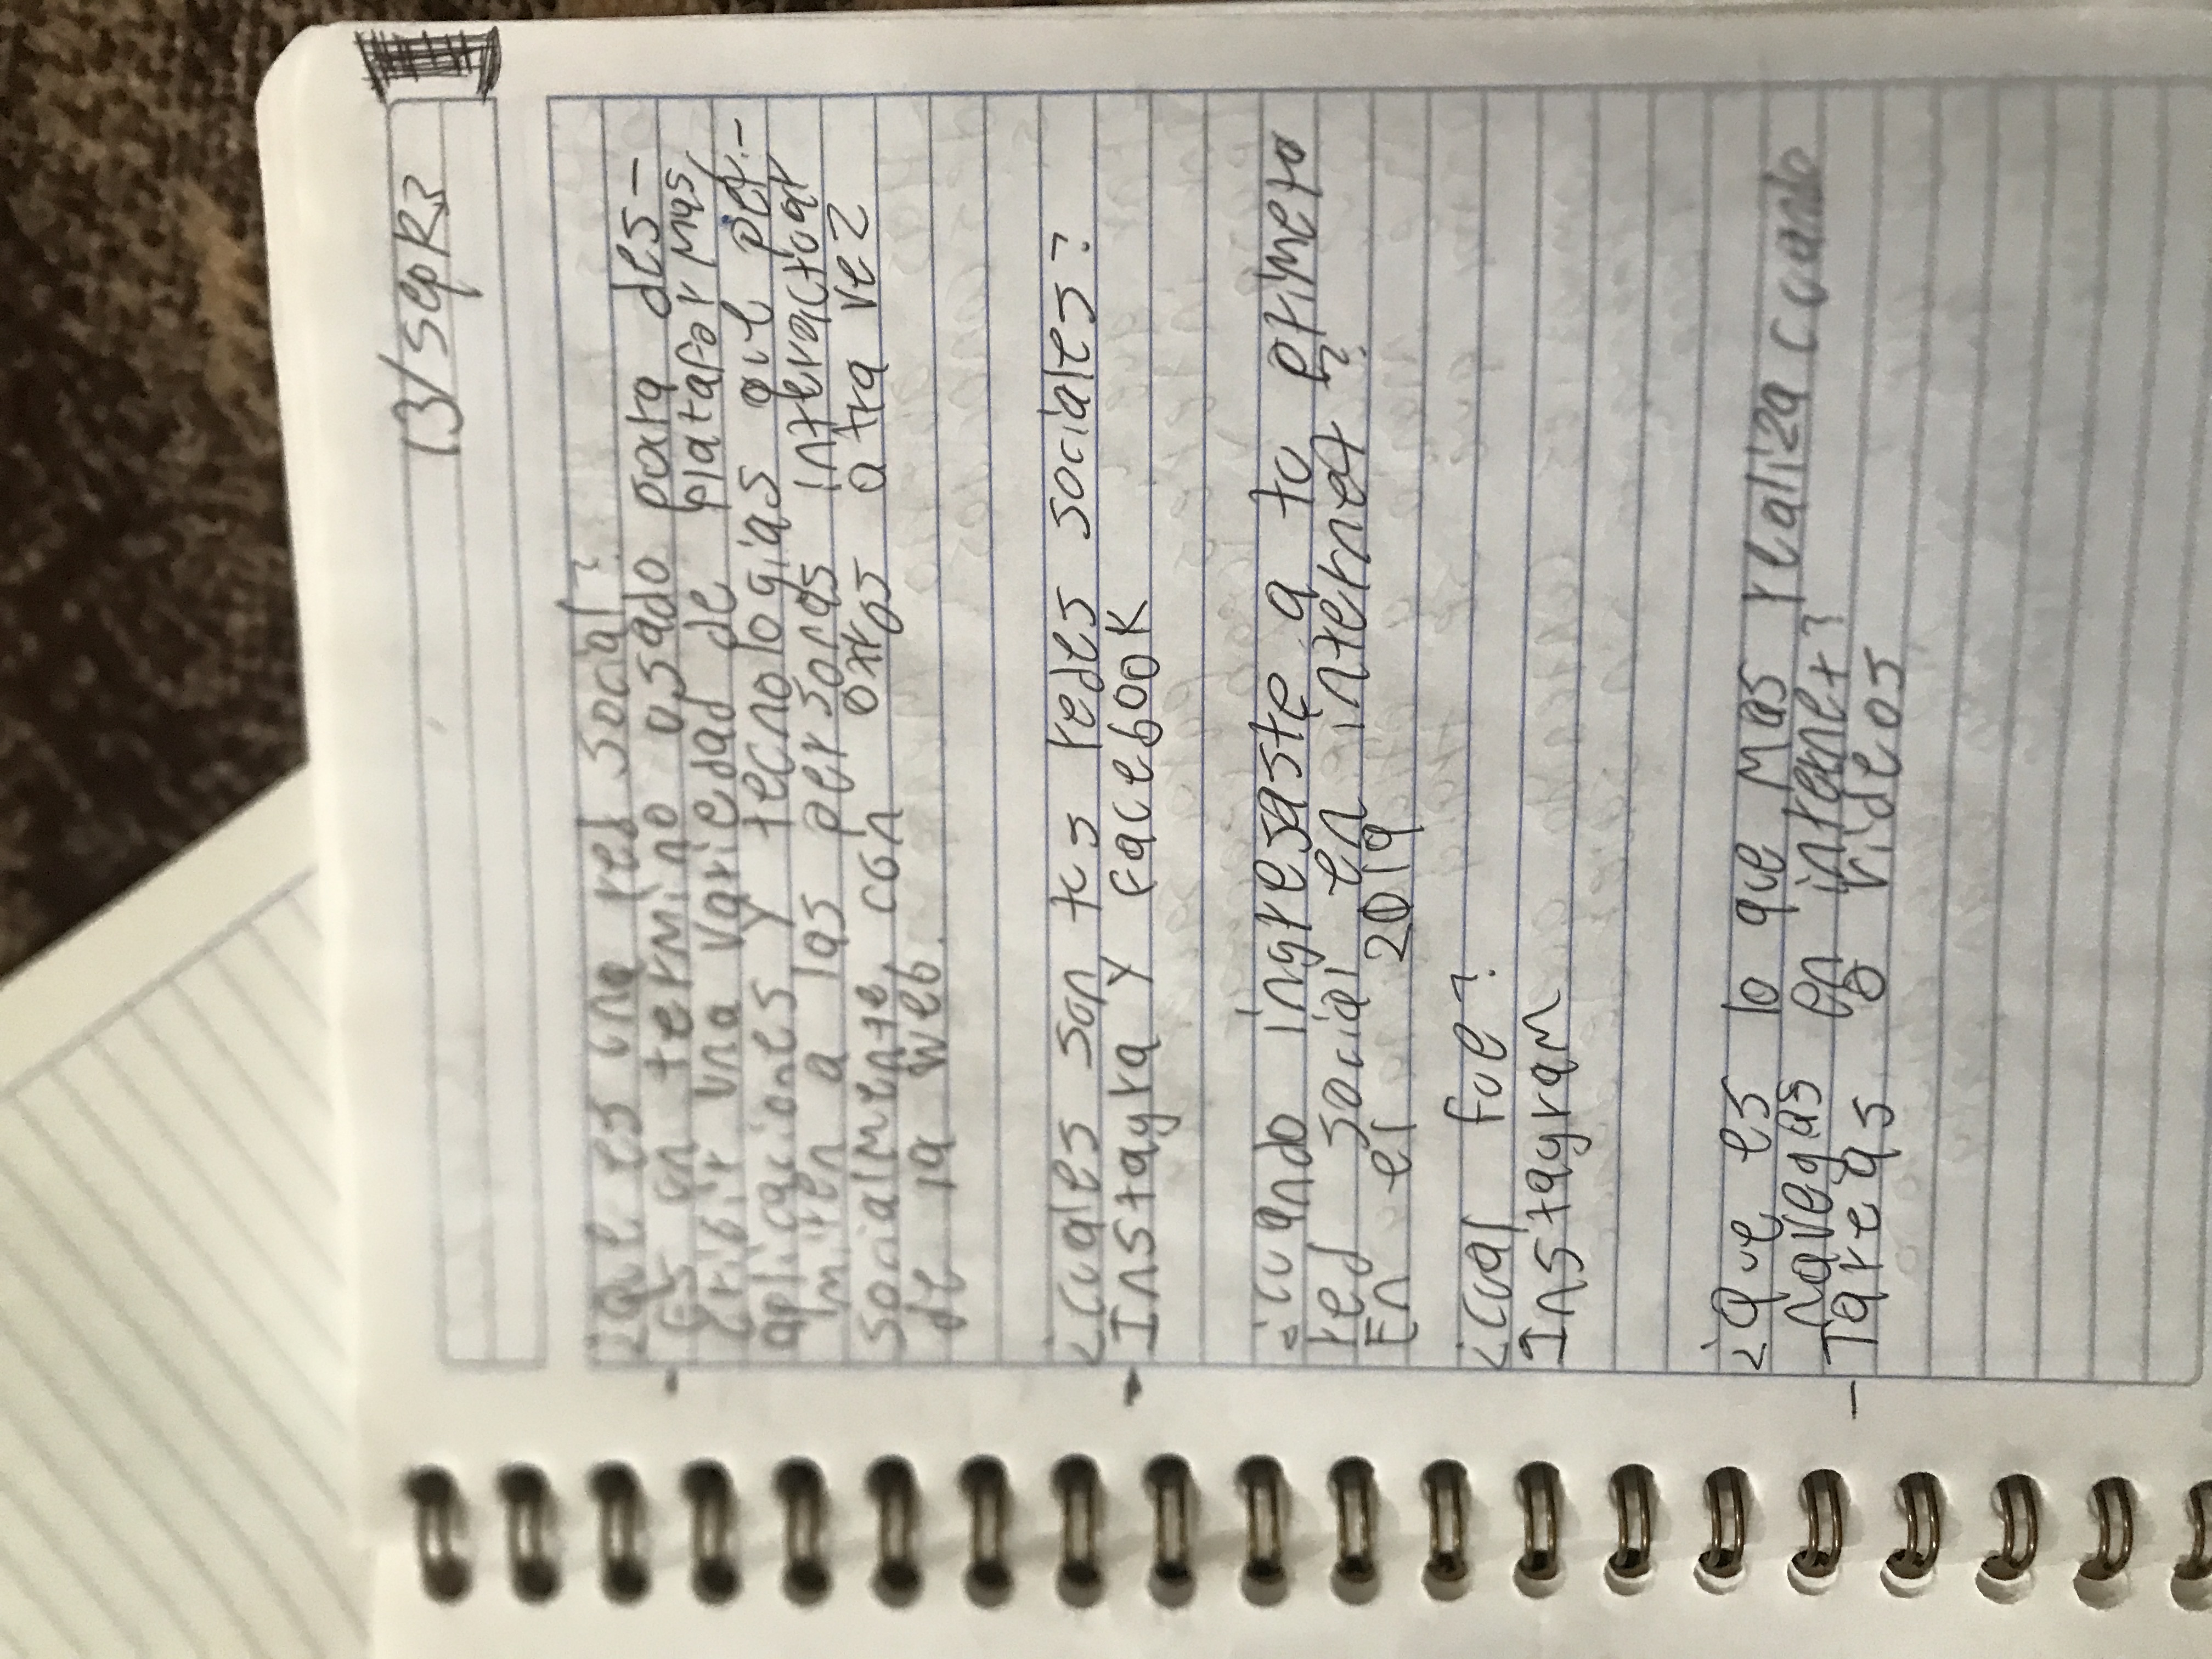 13/sep
¿Que es una red social?
Es un termino usado para des-
cribir una variedad de plataformas,
aplicaciones y tecnologias que per-
miten a las personas interactuar
socialmente con otras a tra vez
de la web.
¿cuales son tus redes sociales?
Instagra y facebook
¿cuando ingresaste a tu primera
red social en internet?
En el 2019
¿cual fue?
Instagram
¿Que es lo que mas realiza cuando
navegas en internet?
Tareas o videos